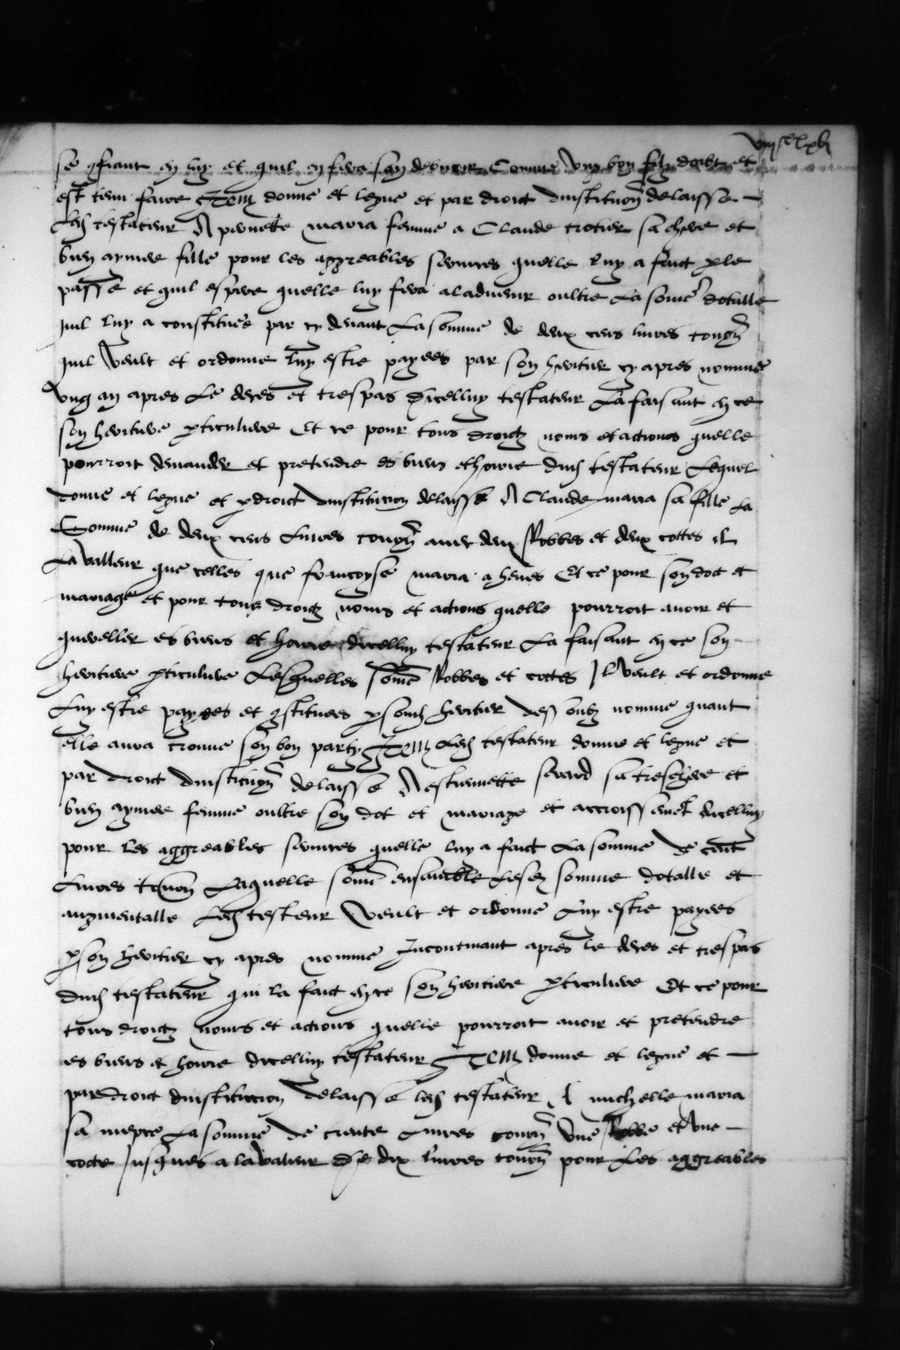 se confiant en luy et quil en fera son debvoir Comme Ung bon filz doibt et
est tenu faire Item donne et legue et par droit dinstitution delaisse
Led testateur A pernette maria femme a Claude trotier sa chere et
bien aymee fille pour les aggreables services quelle luy a faict p le
passe et quil espere quelle luy fera a ladvenir oultre La some dotalle
quil luy a constituee par cy devant La somme de deux cens livres tourn
quil Veult et ordonne luy estre payees par son heritier cy apres nomme
Ung an apres Le deces et trespas dicelluy testateur La faisant en ce
son heritiere pticuliere Et ce pour tous droictz noms et actions quelle
pourroit demander et pretendre es biens et hoirie dud testateur Lequel
donne et legue et p droict dinstitution delaisse A Claude maria sa fille La
Somme de deux cens Livres tourn avec deux Robbes et deux cottes
La valleur que celles que francoyse maria a heues Et ce pour son dot et
mariage et pour tous droictz noms et actions quelle pourroit avoir et
quereller es biens et hoirie dicelluy testateur La faisant en ce son
heritiere pticuliere Lesquelles some Robbes et cottes Il Veult et ordonne
Luy estre payees et constituees p sond heritier dessoubz nomme quant
elle aura trouve son bon party Item Led testateur donne et legue et
par droit dinstitution delaisse A estiennette sa treschere et
bien aymee femme oultre son dot et mariage et accroissement dicelluy
pour les aggreables services quelle luy a faict La somme de cent
Livres tourn Laquelle some ensemble Lesd somme dotalle et
augmentalle Led testateur Veult et ordonne Luy estre payees
p son heritier cy apres nomme Incontinant apres le deces et trespas
dud testateur qui la faict en ce son heritiere pticuliere Et ce pour
tous droictz noms et actions quelle pourroit avoir et pretendre
es biens et hoirie dicelluy testateur Item donne et legue et
par droit dinstitution delaisse led testateur A michelle maria
sa niepce La somme de trente Livres tourn Une Robbe et Une
cotte Jusques a la Valeur de dix livres tourn pour Les aggreables